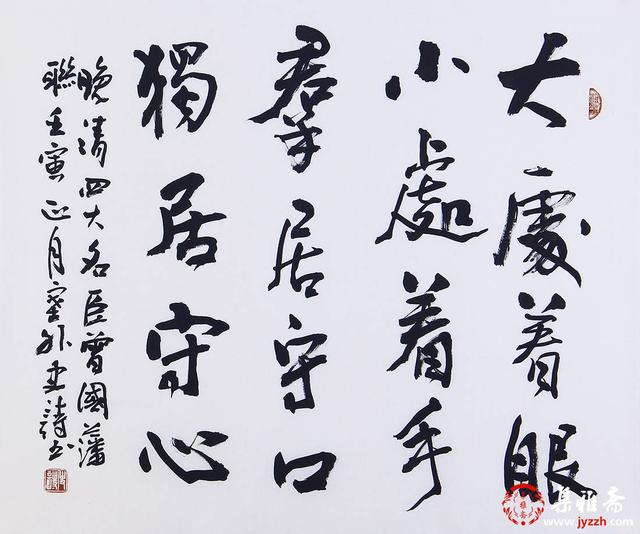 大處着眼
小處着手
羣居守口
獨居守心
晚清四大名臣曾國藩
聯壬寅正月塞外史詩书
集雅斋
www.jyzzh.com